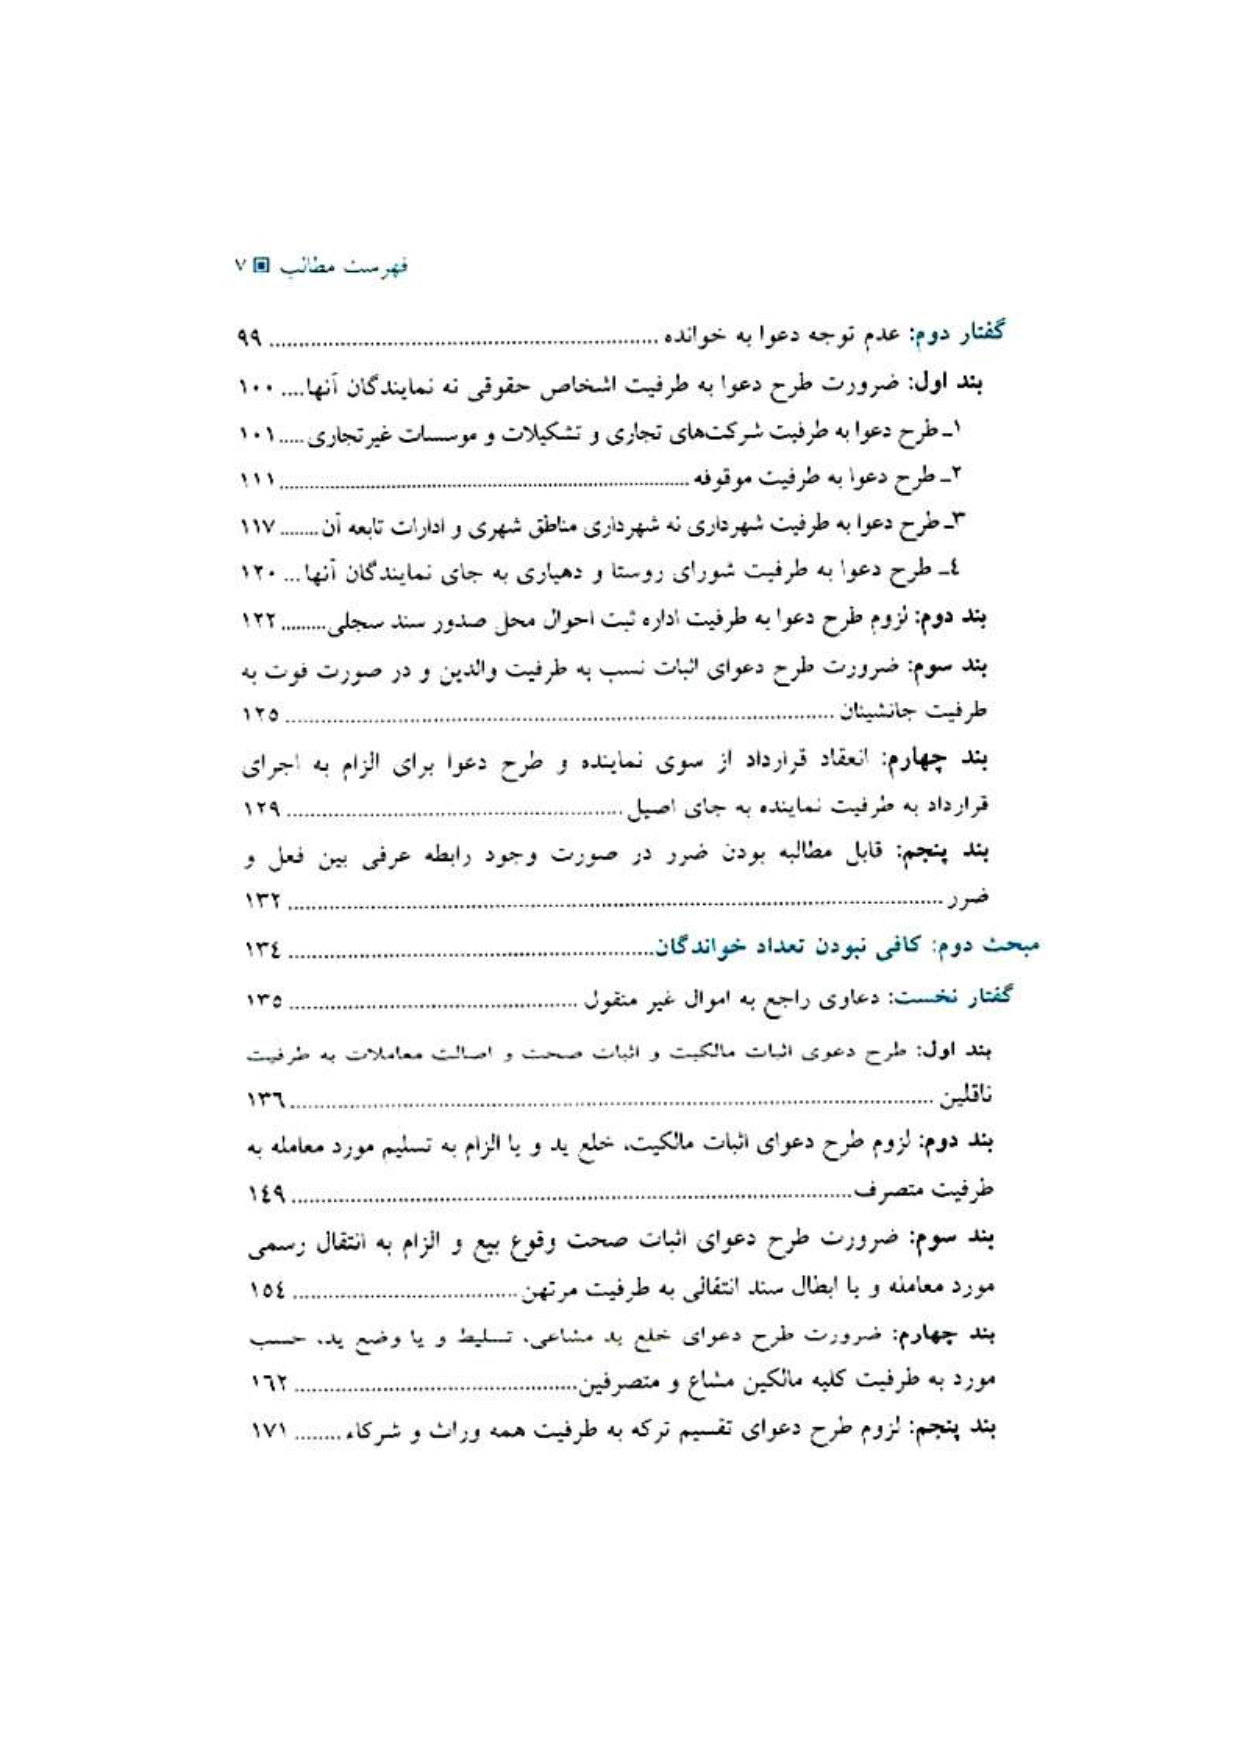 فهرست مطالب ▣ ۷
گفتار دوم: عدم توجه دعوا به خوانده ........ ۹۹
بند اول: ضرورت طرح دعوا به طرفیت اشخاص حقوقی نه نمایندگان آنها.... ۱۰۰
۱ـ طرح دعوا به طرفیت شرکت‌های تجاری و تشکیلات و موسسات غیرتجاری..... ۱۰۱
۲ـ طرح دعوا به طرفیت موقوفه ........ ۱۱۱
۳ـ طرح دعوا به طرفیت شهرداری نه شهرداری مناطق شهری و ادارات تابعه آن ........ ۱۱۷
٤ـ طرح دعوا به طرفیت شورای روستا و دهیاری به جای نمایندگان آنها... ۱۲۰
بند دوم: لزوم طرح دعوا به طرفیت اداره ثبت احوال محل صدور سند سجلی......... ۱۲۲
بند سوم: ضرورت طرح دعوای اثبات نسب به طرفیت والدین و در صورت فوت به
طرفیت جانشینان ........ ۱۲٥
بند چهارم: انعقاد قرارداد از سوی نماینده و طرح دعوا برای الزام به اجرای
قرارداد به طرفیت نماینده به جای اصیل ........ ۱۲۹
بند پنجم: قابل مطالبه بودن ضرر در صورت وجود رابطه عرفی بین فعل و
ضرر ........ ۱۳۲
مبحث دوم: کافی نبودن تعداد خواندگان........ ۱۳٤
گفتار نخست: دعاوی راجع به اموال غیر منقول ........ ۱۳٥
بند اول: طرح دعوی اثبات مالکیت و اثبات صحت و اصالت معاملات به طرفیت
ناقلین ........ ۱۳٦
بند دوم: لزوم طرح دعوای اثبات مالکیت، خلع ید و یا الزام به تسلیم مورد معامله به
طرفیت متصرف........ ۱٤۹
بند سوم: ضرورت طرح دعوای اثبات صحت وقوع بیع و الزام به انتقال رسمی
مورد معامله و یا ابطال سند انتقالی به طرفیت مرتهن........ ۱٥٤
بند چهارم: ضرورت طرح دعوای خلع ید مشاعی، تسلیط و یا وضع ید، حسب
مورد به طرفیت کلیه مالکین مشاع و متصرفین........ ۱٦۲
بند پنجم: لزوم طرح دعوای تقسیم ترکه به طرفیت همه وراث و شرکاء ........ ۱۷۱